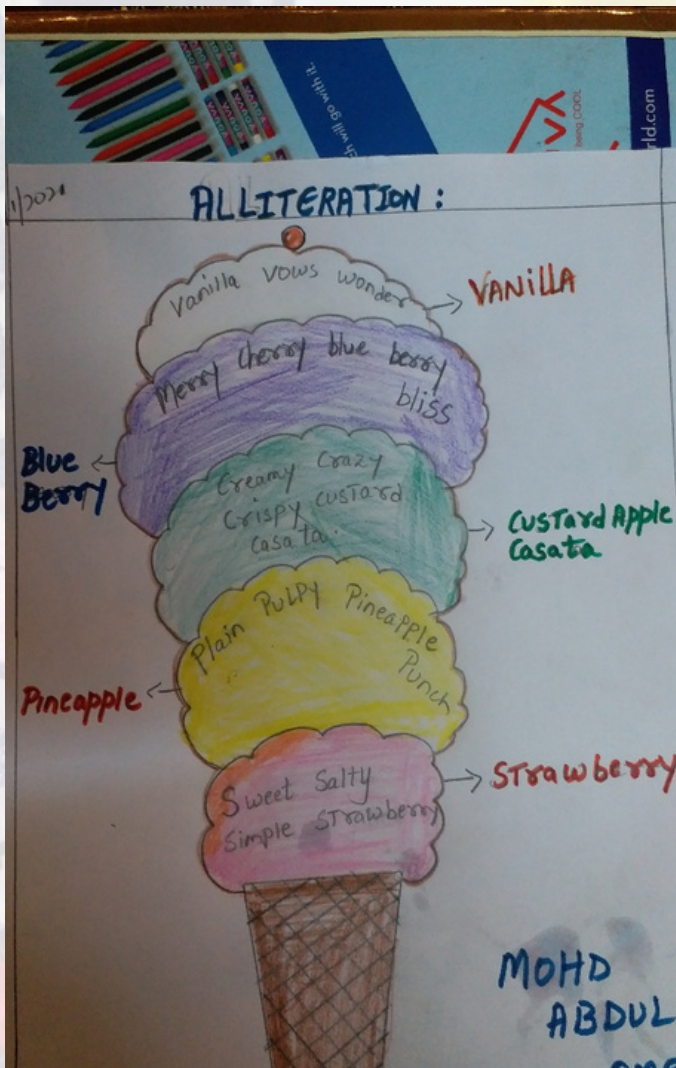 ch will go with it.
being COOL
rld.com
1/2021
ALLITERATION :
Vanilla vows wonder
VANILLA
Merry cherry blue berry
bliss
Blue
Berry
Creamy Crazy
Crispy custard
casata.
Custard Apple
Casata
Plain Pulpy Pineapple
Punch
Pineapple
Sweet Salty
Simple Strawberry
Strawberry
MOHD
ABDUL